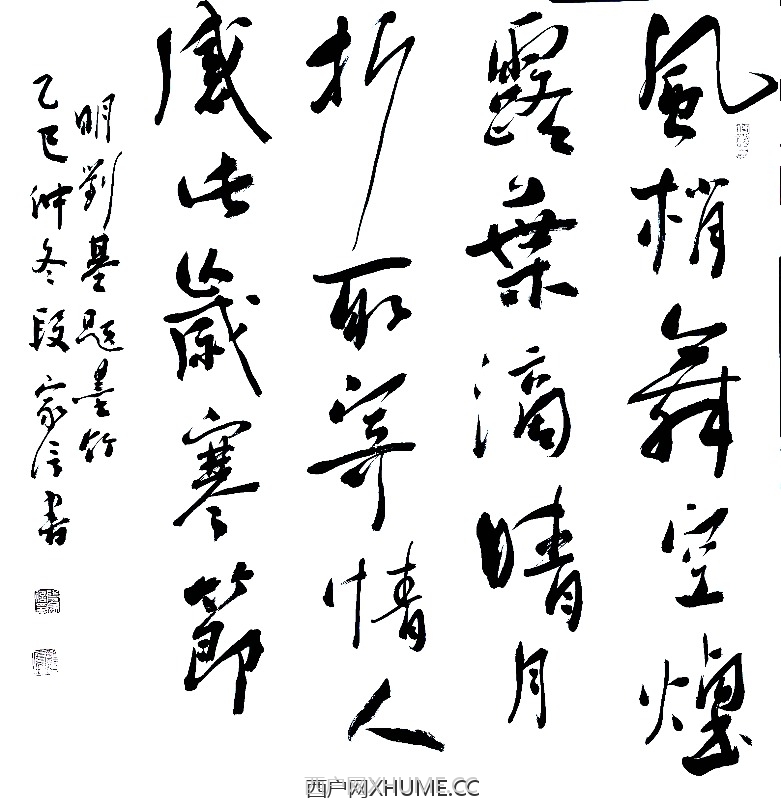 風梢舞空煙
露葉滴晴月
折取寄情人
感此歲寒節
明劉基題墨竹
乙巳仲冬段家信書
西户网XHUME.CC